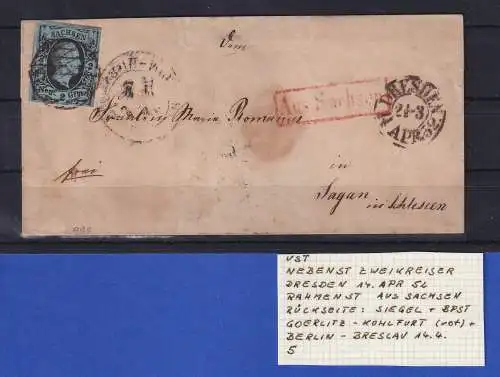 SACHSEN
Neu 2 Grosch
Dem
Aus Sachsen
DRESDEN
APR. 52
Fräulein Maria Romanus
in
frei
Sagan
in Schlesien
VST
NEBENST ZWEIKREISER
DRESDEN 14. APR 52
RAHMENST AUS SACHSEN
RÜCKSEITE: SIEGEL + BPST
GOERLITZ - KOHLFURT (rot) +
BERLIN - BRESLAU 14.4.
5